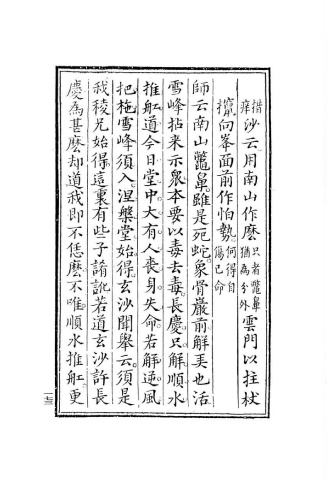 措痒沙云用南山作麼只者鼈鼻猶為分外雲門以拄杖
攛向峯面前作怕勢何得自傷己命
師云南山鼈鼻雖是死蛇象骨巖前解弄也活
雪峰拈来示衆本要以毒去毒長慶只解順水
推舡道今日堂中大有人喪身失命若解逆風
把柂雪峰須入涅槃堂始得玄沙聞舉云須是
我稜兄始得這裏有些子誵訛若道玄沙許長
慶為甚麼却道我即不恁麼不唯順水推舡更